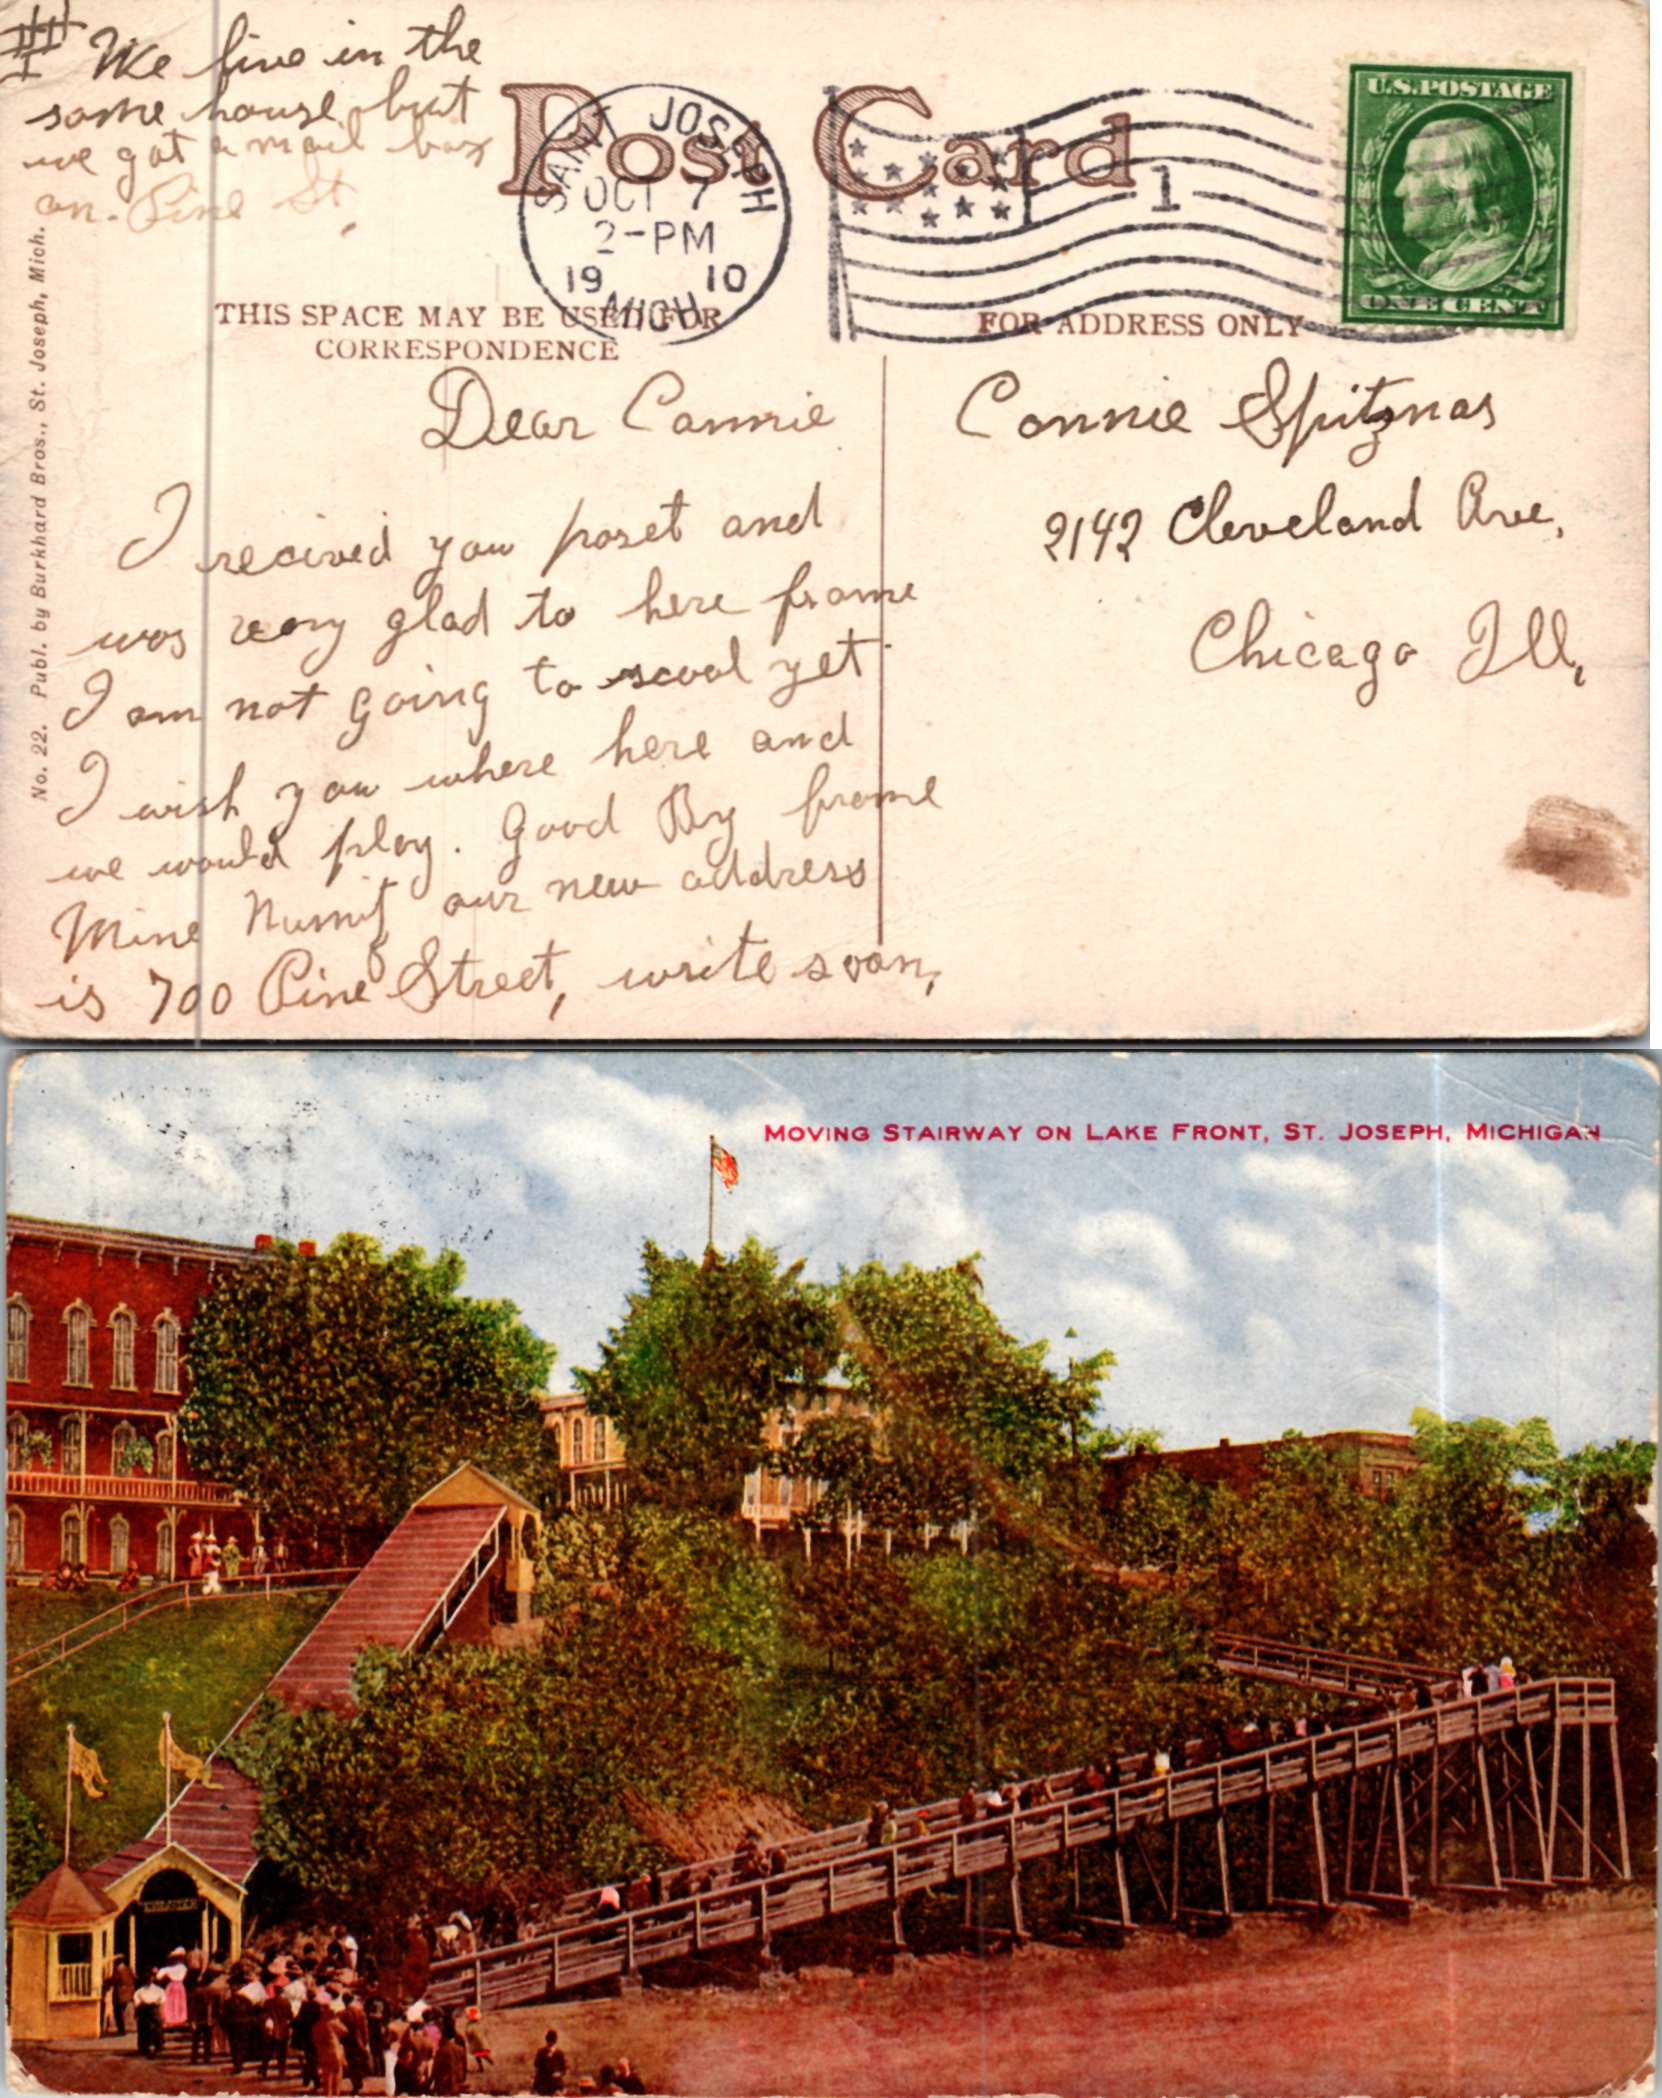 # We live in the
same house but
we got a mail box
on. Pine St,
Post Card
SAINT JOSEPH
OCT 7
2-PM
19 10
MICH
1
U.S. POSTAGE
ONE CENT
THIS SPACE MAY BE USED FOR
CORRESPONDENCE
FOR ADDRESS ONLY
No. 22. Publ. by Burkhard Bros., St. Joseph, Mich.
Dear Connie
I recived you poset and
was very glad to here frome
I am not going to scool yet
I wish you where here and
we would play. Good By frome
Mine our new address
is 700 Pine Street, write soon,
Connie Spitznas
2142 Cleveland Ave,
Chicago Ill,
MOVING STAIRWAY ON LAKE FRONT, ST. JOSEPH, MICHIGAN